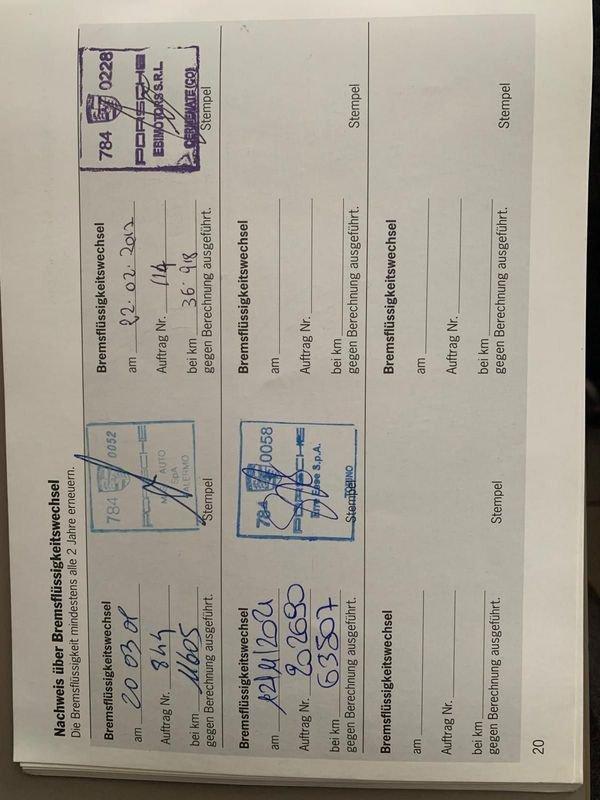 Nachweis über Bremsflüssigkeitswechsel
Die Bremsflüssigkeit mindestens alle 2 Jahre erneuern.
Bremsflüssigkeitswechsel
am 20 03 08
Auftrag Nr. 844
bei km 11605
gegen Berechnung ausgeführt.
784 0052
PORSCHE
AUTO
SpA
Stempel
Bremsflüssigkeitswechsel
am 22.02.2012
Auftrag Nr. 114
bei km 36.918
gegen Berechnung ausgeführt.
784 0228
PORSCHE
EBIMOTORS S.R.L.
CERMENATE (CO)
Stempel
Bremsflüssigkeitswechsel
am 12/11/2021
Auftrag Nr. 202690
bei km 63507
gegen Berechnung ausgeführt.
784 0058
PORSCHE
Erre Esse S.p.A.
TORINO
Stempel
Bremsflüssigkeitswechsel
am
Auftrag Nr.
bei km
gegen Berechnung ausgeführt.
Stempel
Bremsflüssigkeitswechsel
am
Auftrag Nr.
bei km
gegen Berechnung ausgeführt.
Stempel
Bremsflüssigkeitswechsel
am
Auftrag Nr.
bei km
gegen Berechnung ausgeführt.
Stempel
20